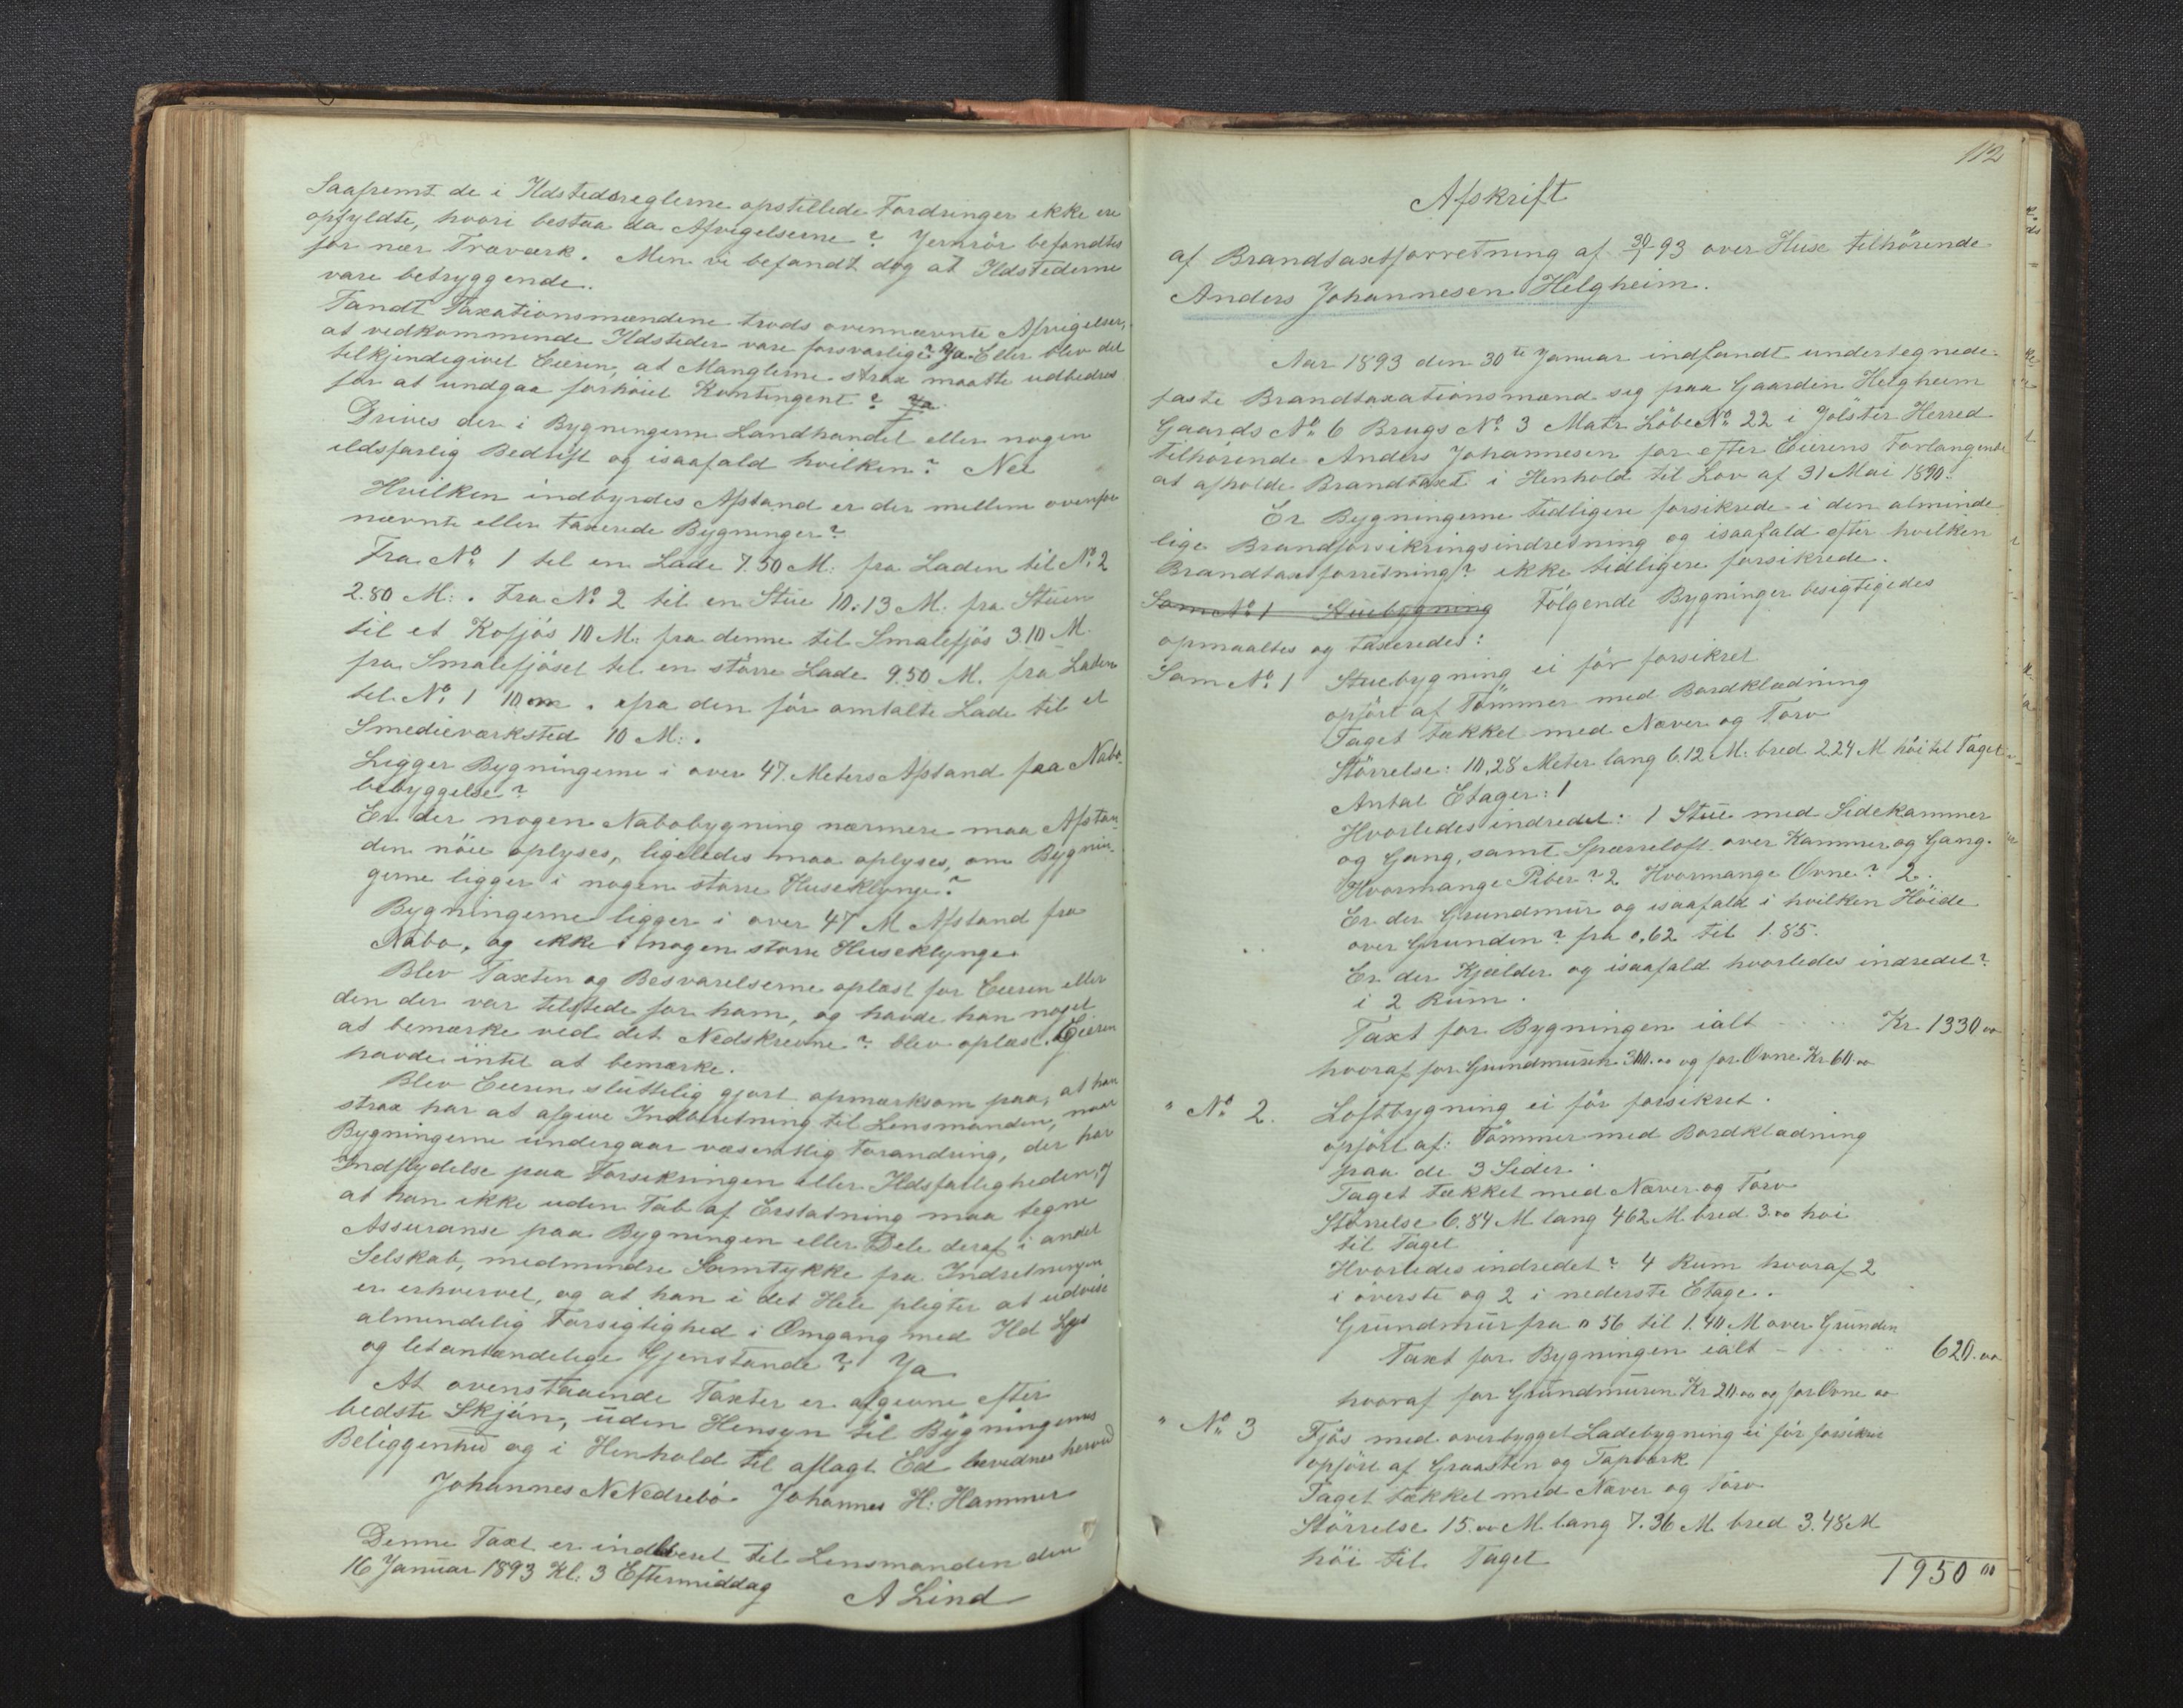 Saafremt de i Ildstedsreglerne opstillede Fordringer ikke ere
opfyldte, hvori bestaa da Afvigelserne? Jernrör befandtes
for nær Træværk. Men vi befandt dog at Ildstederne
vare betryggende.
Fandt Taxationsmændene trods ovennævnte Afvigelser,
at vedkommende Ildsteder vare forsvarlige? Ja. Eller blev det
tilkjendegivet Eieren, at Manglerne strax maatte udbedres
for at undgaa forhöiet Kontingent?
Drives der i Bygningerne Landhandel eller nogen
ildsfarlig Bedrift og isaafald hvilken? Nei
Hvilken indbyrdes Afstand er der mellem ovenfor
nævnte eller taxerede Bygninger?
Fra No. 1 til en Lade 7.50 M: fra Laden til No. 2
2.80 M: . Fra No. 2 til en Stue 10.13 M: fra Stuen
til et Kofjös 10 M: fra denne til Smalefjös 3.10 M.
fra Smalefjöset til en större Lade 9.50 M. fra Laden
til No. 1 10 m . fra den för omtalte Lade til et
Smedieværksted 10 M: .
Ligger Bygningerne i over 47 Meters Afstand fra Nabo-
bebyggelse?
Er der nogen Nabobygning nærmere maa Afstan-
den nöie oplyses, ligeledes maa oplyses, om Bygnin-
gerne ligger i nogen större Huseklynge?
Bygningerne ligger i over 47 M Afstand fra
Nabo, og ikke i nogen större Huseklynge.
Blev Taxten og Besvarelserne oplæst for Eieren eller
den der var tilstede for ham, og havde han noget
at bemærke ved det Nedskrevne? blev oplæst. Eieren
havde intet at bemærke.
Blev Eieren sluttelig gjort opmærksom paa, at han
strax har at afgive Indberetning til Lensmanden, naar
Bygningerne undergaar væsentlig Forandring, der har
Indflydelse paa Forsikringen eller Ildsfarligheden, og
at han ikke uden Tab af Erstatning maa tegne
Assuranse paa Bygningen eller Dele deraf i andet
Selskab, medmindre Samtykke fra Indretningen
er erhvervet, og at han i det Hele pligter at udvise
almindelig Forsigtighed i Omgang med Ild Lys
og letantændelige Gjenstande? Ja
At ovenstaaende Taxter er afgivne efter
bedste Skjön, uden Hensyn til Bygningernes
Beliggenhed og i Henhold til aflagt Ed bevidnes herved
Johannes N Nedrebö Johannes H. Hammer
Denne Taxt er indleveret til Lensmanden den
16 Januar 1893 Kl: 3 Eftermiddag
A Lind
112
Afskrift
af Brandtaxtforretning af 30/1 93 over Huse tilhörende
Anders Johannesen Helgheim.
Aar 1893 den 30te Januar indfandt undertegnede
faste Brandtaxationsmænd sig paa Gaarden Helgheim
Gaards No. 6 Brugs No. 3 Matr. Löbe No. 22 i Jölster Herred
tilhörende Anders Johannesen for efter Eierens Forlangende
at afholde Brandtaxt i Henhold til Lov af 31 Mai 1890.
Er Bygningerne tidligere forsikrede i den alminde
lige Brandforsikringsindretning og isaafald efter hvilken
Brandtaxtforretning? ikke tidligere forsikrede.
Som No. 1 Stuebygning Fölgende Bygninger besigtigedes
opmaaltes og taxeredes:
Som No. 1 Stuebygning ei för forsikret
opfört af Tömmer med Bordklædning
Taget tækket med Næver og Torv
Störrelse: 10,28 Meter lang 6.12 M. bred 2.24 M höi til Taget
Antal Etager: 1
Hvorledes indredet: 1 Stue med Sidekammer
og Gang, samt Sperreloft over Kammer og Gang.
Hvormange Piber? 2 Hvormange Ovne? 2.
Er der Grundmur og isaafald i hvilken Höide
over Grunden? fra 0,62 til 1.85.
Er der Kjælder og isaafald hvorledes indredet?
i 2 Rum.
Taxt for Bygningen ialt Kr. 1330.00
hvoraf for Grundmuren 300.00 og for Ovne Kr 60.00
" No. 2. Loftbygning ei för forsikret.
opfört af: Tömmer med Bordklædning
paa de 3 Sider.
Taget tækket med Næver og Torv
Störrelse 6.84 M lang 462 M bred 3.00 höi
til Taget
Hvorledes indredet? 4 Rum hvoraf 2
i överste og 2 i nederste Etage.
Grundmur fra 0 56 til 1.40 M over Grunden
Taxt for Bygningen ialt 620.00
hvoraf for Grundmuren Kr 20.00 og for Ovne 00
" No. 3 Fjös med overbygget Ladebygning ei för forsikret
opfört af Graasten og
Taget tækket med Næver og Torv
Störrelse 15.00 M. lang 7.36 M. bred 3.48 M
höi til Taget
1950 00